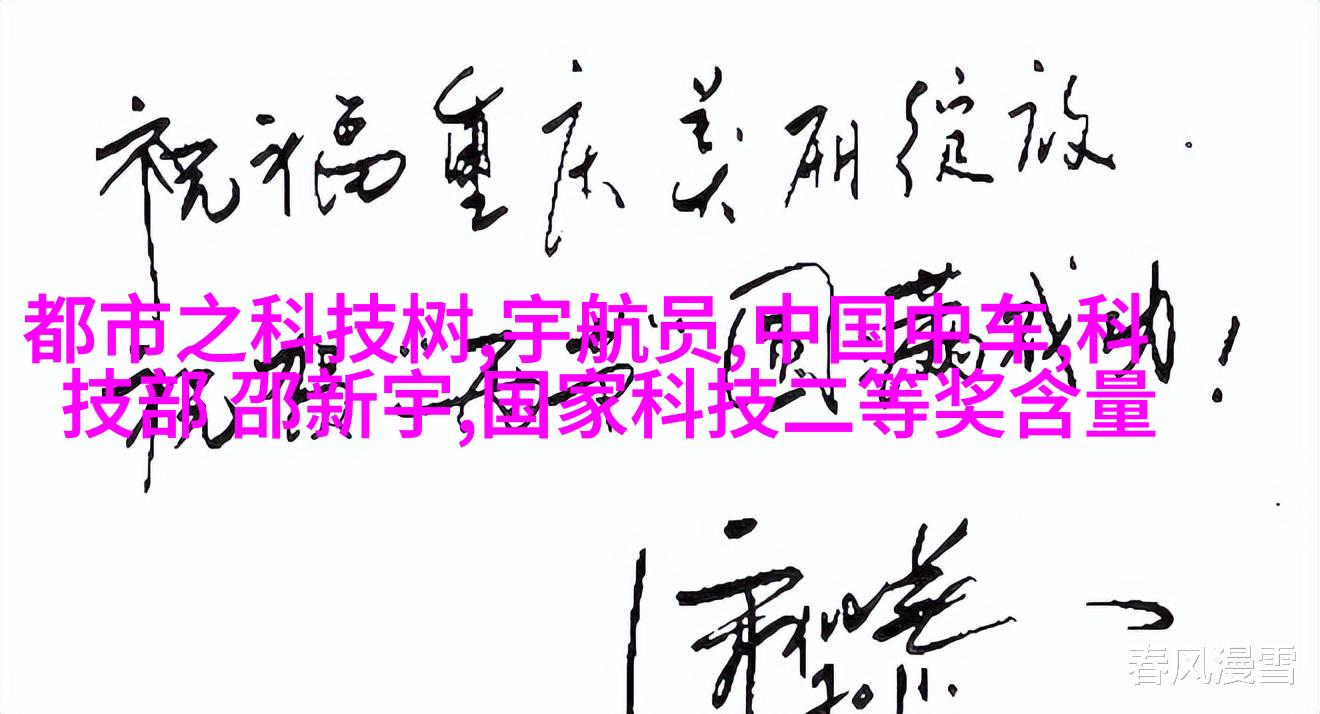 祝福重庆美丽绽放.
都市之科技树,宇航员,中国中车,科
技部 邵新宇,国家科技二等奖含量
祝 圆满成功!
2011.
春风漫雪